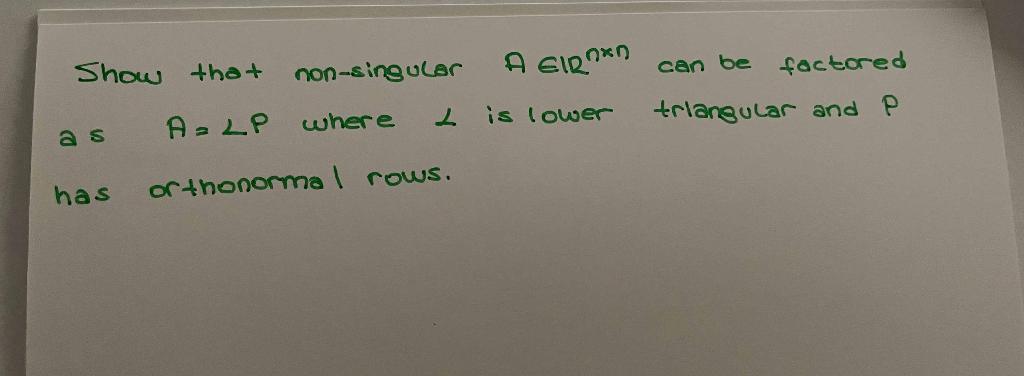 Show that non-singular A ∈ ℝⁿˣⁿ can be factored
as A = LP where L is lower triangular and P
has orthonormal rows.